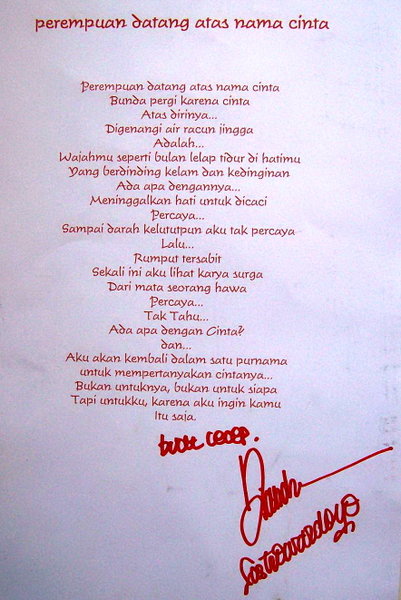 perempuan datang atas nama cinta
Perempuan datang atas nama cinta
Bunda pergi karena cinta
Atas dirinya...
Digenangi air racun jingga
Adalah...
Wajahmu seperti bulan lelap tidur di hatimu
Yang berdinding kelam dan kedinginan
Ada apa dengannya...
Meninggalkan hati untuk dicaci
Percaya...
Sampai darah kelututpun aku tak percaya
Lalu...
Rumput tersabit
Sekali ini aku lihat karya surga
Dari mata seorang hawa
Percaya...
Tak Tahu...
Ada apa dengan Cinta?
dan...
Aku akan kembali dalam satu purnama
untuk mempertanyakan cintanya...
Bukan untuknya, bukan untuk siapa
Tapi untukku, karena aku ingin kamu
Itu saja.
cecep.
Sastrowardoyo